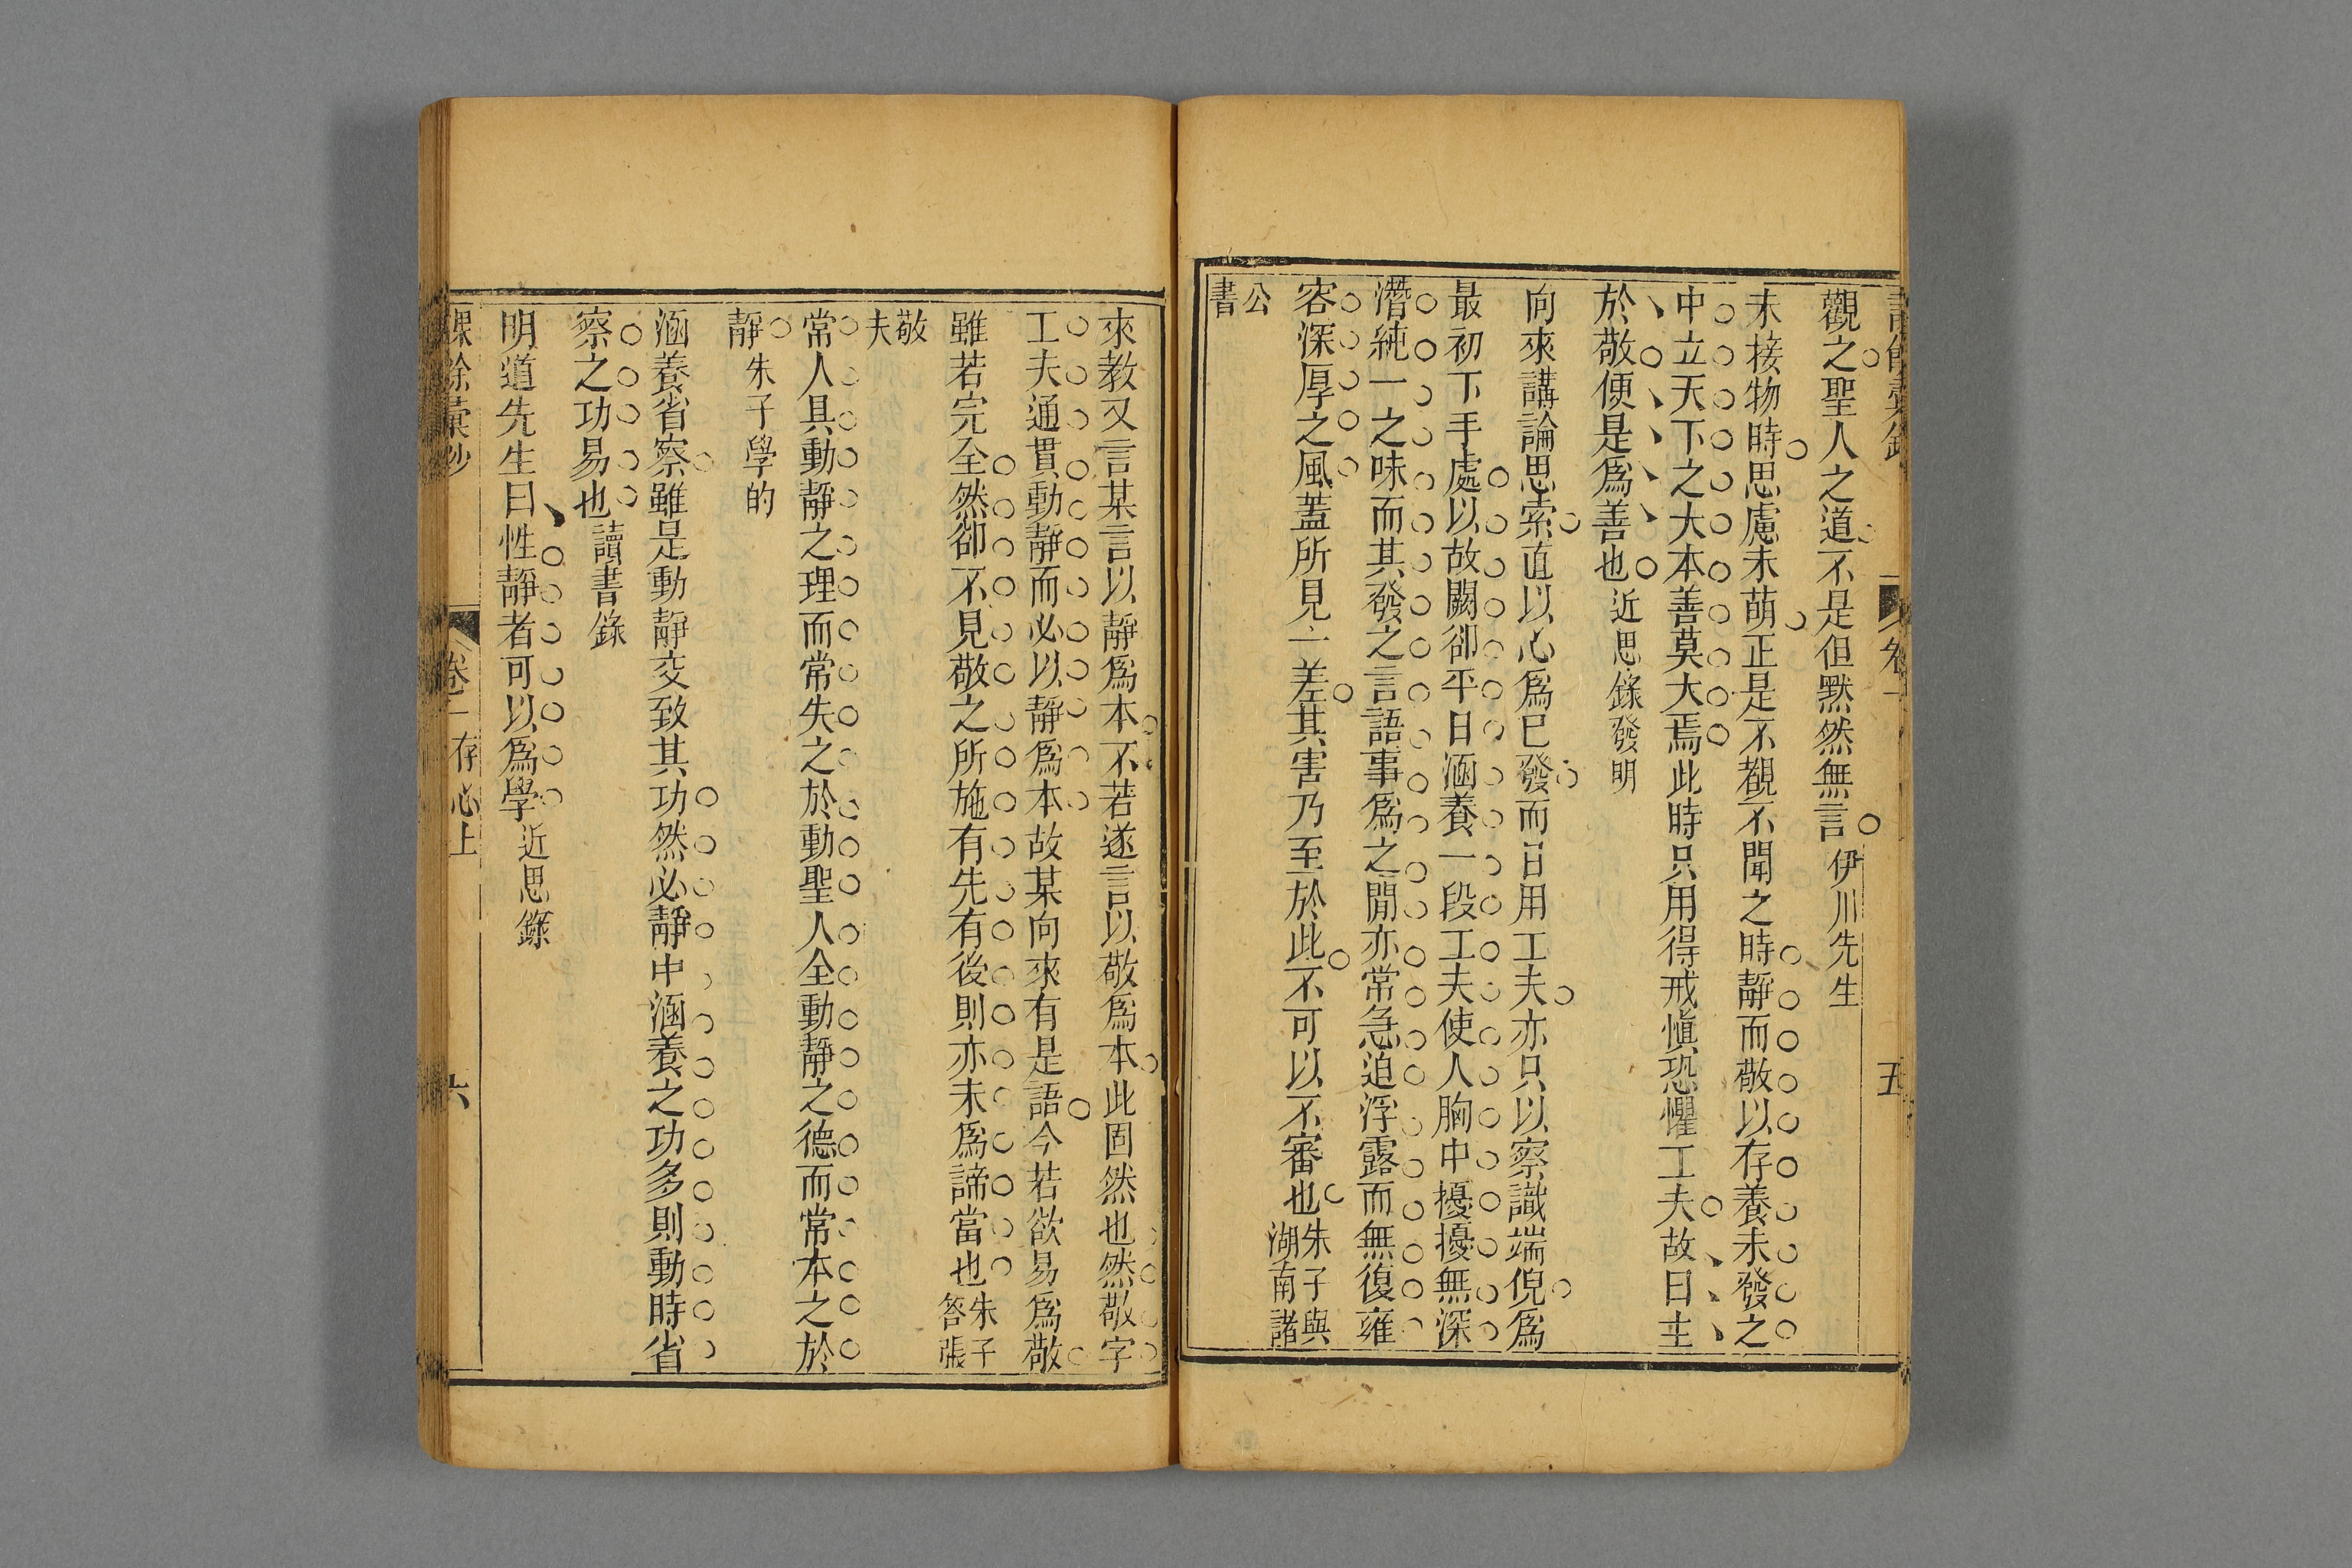 觀之聖人之道不是但默然無言伊川先生
未接物時思慮未萌正是不覩不聞之時靜而敬以存養未發之
中立天下之大本善莫大焉此時只用得戒愼恐懼工夫故曰主
於敬便是爲善也近思錄發明
向來講論思索直以心爲已發而日用工夫亦只以察識端倪爲
最初下手處以故闕卻平日涵養一段工夫使人胸中擾擾無深
潛純一之味而其發之言語事爲之閒亦常急迫浮露而無復雍
容深厚之風蓋所見一差其害乃至於此不可以不審也朱子與湖南諸
公書
五
來教又言某言以靜爲本不若遂言以敬爲本此固然也然敬字
工夫通貫動靜而必以靜爲本故某向來有是語今若欲易爲敬
雖若完全然卻不見敬之所施有先有後則亦未爲諦當也朱子答張
敬夫
常人具動靜之理而常失之於動聖人全動靜之德而常本之於
靜朱子學的
涵養省察雖是動靜交致其功然必靜中涵養之功多則動時省
察之功易也讀書錄
明道先生曰性靜者可以爲學近思錄
卷一 存心上 六